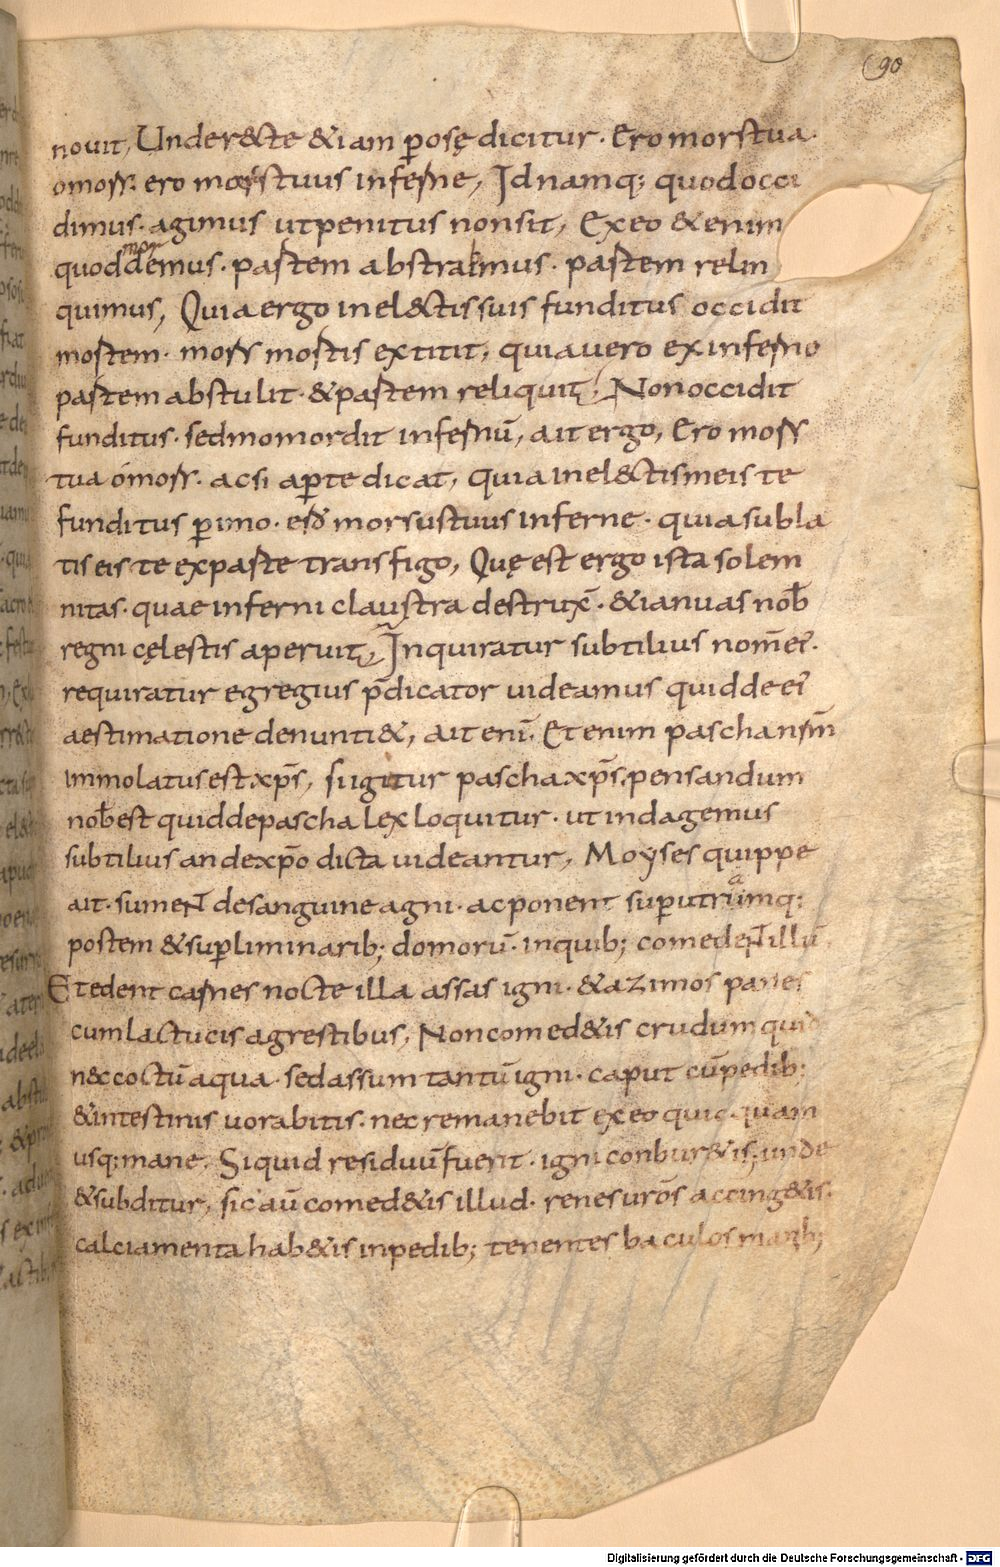 90
nouit, Under&te &iam p̱ osę dicitur · Ero mors tua·
o mors. ero morsus tuus inferne, Id namq; quod occi
dimus· agimus ut penitus non sit, Ex eo & enim
quod mordemus· partem abstrahimus· partem relin
quimus, Quia ergo in el&tis suis funditus occidit
mortem· mors mortis extitit, quia uero ex inferno
partem abstulit· & partem reliquit, Non occidit
funditus· sed momordit infernū, ait ergo, Ero mors
tua o mors. ac si ap̱te dicat, Quia in el&tis meis te
funditus p̱imo· ero morsus tuus inferne· quia subla
tis eis te ex parte transfigo, Quę est ergo ista solem
nitas· quae inferni claustra destrux̄· & ianuas nob̄
regni cęlestis aperuit, Inquiratur subtilius nom̄ ei'·
requiratur egregius p̄dicator uideamus quid de ei'
aestimatione denunti&, ait eni̅. Et enim pascha nr̄m
immolatus est xp̄s, si igitur pascha xp̄s. pensandum
nob̄ est quid de pascha lex loquitur· ut indagemus
subtilius an de xp̄o dicta uideantur, Moyses quippe
ait· sumeNt de sanguine agni· ac ponent sup̱ utrumq:
postem & sup̱liminarib; domorū· in quib; comedeNt illū·
Et edent carnes nocte illa assas igni· & azimos panes
cum lactucis agrestibus, Non comed&is crudum quid
nec coctū aqua· sed assum tantū igni· caput cū pedib;
& intestinis uorabitis· nec remanebit ex eo quicquam
usq; mane. Si quid residuū fuerit· igni conbur&is; unde
& subditur, sic aū comed&is illud· renes urōs accing&is·
calciamenta hab&is in pedib; tenentes baculos manib;
Digitalisierung gefördert durch die Deutsche Forschungsgemeinschaft - DFG